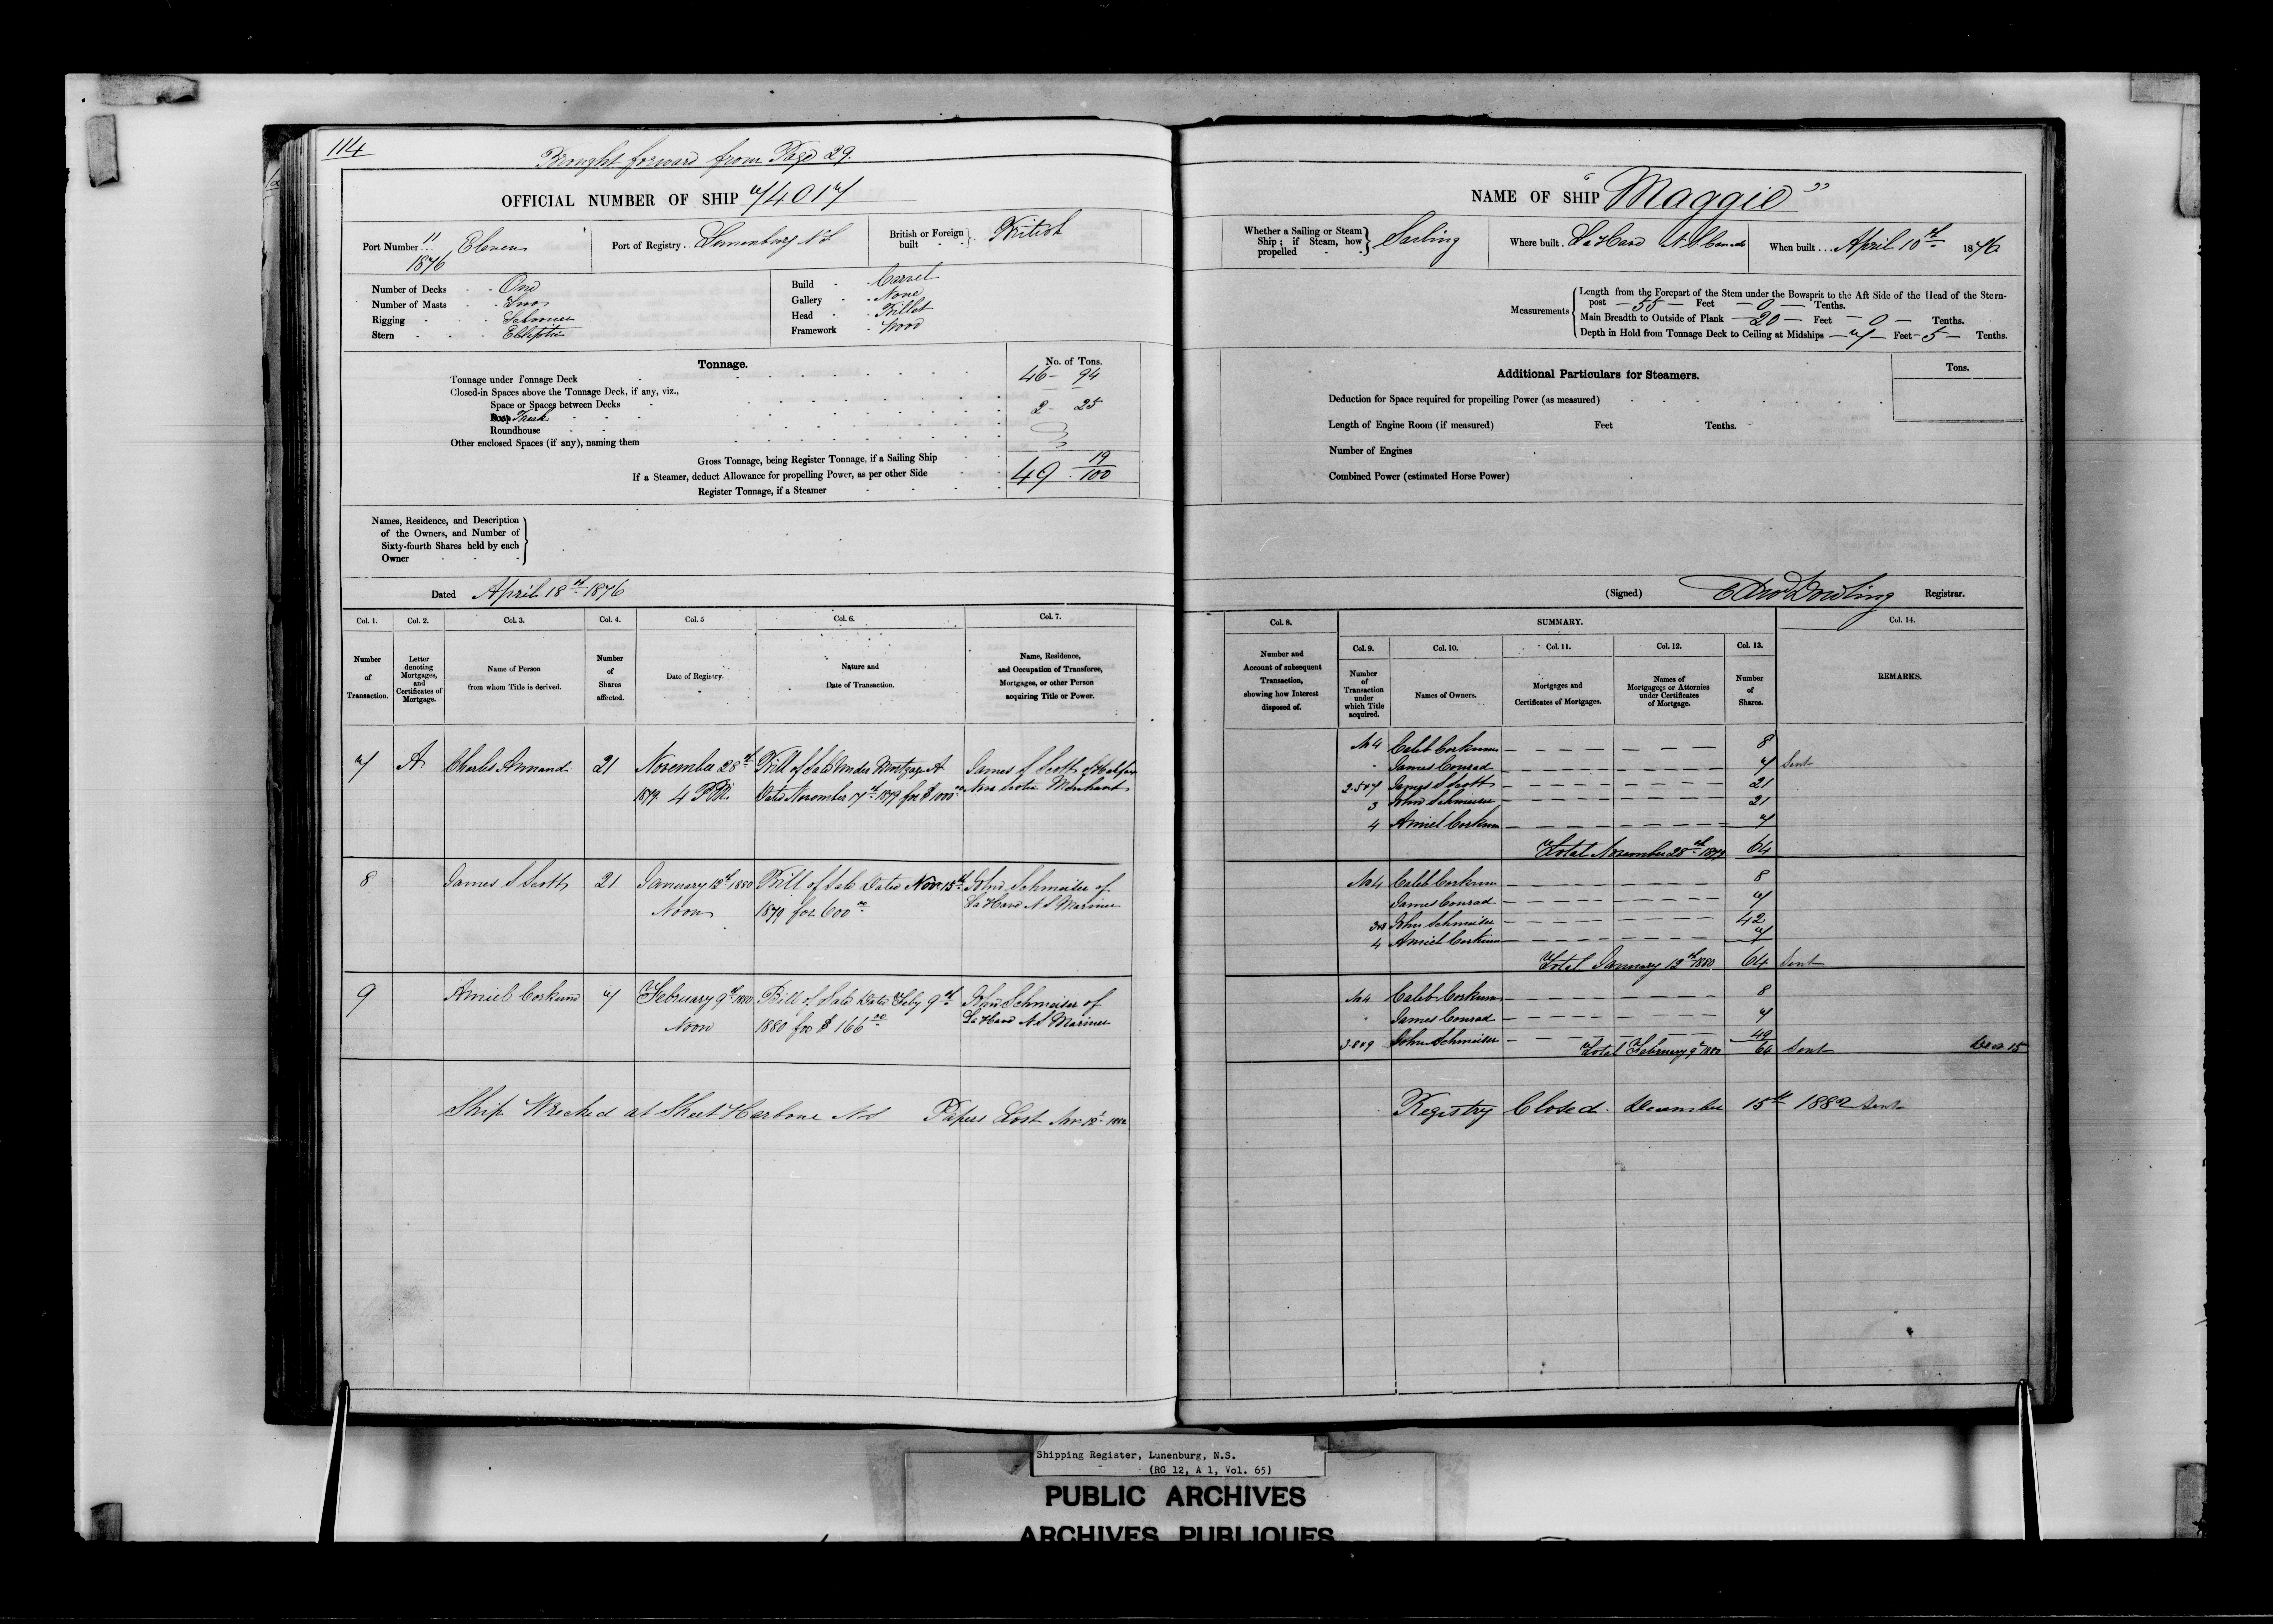 114
Brought forward from Page 29.
OFFICIAL NUMBER OF SHIP 74017
Port Number 11 1876 Eleven
Port of Registry Lunenburg N S
British or Foreign built British
Number of Decks One
Number of Masts Two
Rigging Schooner
Stern Elliptic
Build Carvel
Gallery None
Head Billet
Framework Wood
Tonnage.
No. of Tons.
Tonnage under Tonnage Deck 46 - 94
Closed-in Spaces above the Tonnage Deck, if any, viz.,
Space or Spaces between Decks
Poop Trunk 2 - 25
Roundhouse
Other enclosed Spaces (if any), naming them
Gross Tonnage, being Register Tonnage, if a Sailing Ship
If a Steamer, deduct Allowance for propelling Power, as per other Side 49 19/100
Register Tonnage, if a Steamer
Names, Residence, and Description
of the Owners, and Number of
Sixty-fourth Shares held by each
Owner
Dated April 18th 1876
Col. 1. Col. 2. Col. 3. Col. 4. Col. 5 Col. 6. Col. 7.
Number of Transaction.
Letter denoting Mortgages, and Certificates of Mortgage.
Name of Person from whom Title is derived.
Number of Shares affected.
Date of Registry.
Nature and Date of Transaction.
Name, Residence, and Occupation of Transferee, Mortgagee, or other Person acquiring Title or Power.
7 A Charles Annand 21 November 28th Bill of Sale Under Mortgage A James S Scott of Halifax
1879 4 PM. Dated November 17th 1879 for $1000 00 Nova Scotia Merchant
8 James S Scott 21 January 12th 1880 Bill of Sale Dated Nov 15th John Schmeiser of
Noon 1879 for 600 00 La Have N S Mariner
9 Amiel Corkum 7 February 9th 1880 Bill of Sale Dated Feby 9th John Schmeiser of
Noon 1880 for $166 00 La Have N S Mariner
Ship Wrecked at Sheet Harbour N S Papers Lost Nov 12th 1882
NAME OF SHIP "Maggie"
Whether a Sailing or Steam Ship; if Steam, how propelled Sailing
Where built La Have N S Canada
When built April 10th 1876
Measurements
Length from the Forepart of the Stem under the Bowsprit to the Aft Side of the Head of the Stern-
post — 55 — Feet — 0 — Tenths.
Main Breadth to Outside of Plank — 20 — Feet — 0 — Tenths.
Depth in Hold from Tonnage Deck to Ceiling at Midships — 7 — Feet — 5 — Tenths.
Additional Particulars for Steamers.
Tons.
Deduction for Space required for propelling Power (as measured)
Length of Engine Room (if measured) Feet Tenths.
Number of Engines
Combined Power (estimated Horse Power)
(Signed) Edwd Dowling Registrar.
Col. 8. SUMMARY. Col. 14.
Col. 9. Col. 10. Col. 11. Col. 12. Col. 13.
Number and Account of subsequent Transaction, showing how Interest disposed of.
Number of Transaction under which Title acquired.
Names of Owners.
Mortgages and Certificates of Mortgages.
Names of Mortgagees or Attornies under Certificates of Mortgage.
Number of Shares.
REMARKS.
Caleb Corkum — — — — — — 8
James Conrad — — — — — — 7 Sent
2.5&7 James S Scott — — — — — — 21
3 John Schmeiser — — — — — — 21
4 Amiel Corkum — — — — — — 7
Total November 28th 1879 64
Caleb Corkum — — — — — — 8
James Conrad — — — — — — 7
3&8 John Schmeiser — — — — — — 42
4 Amiel Corkum — — — — — — 7
Total January 12th 1880 64 Sent
Caleb Corkum — — — — — — 8
James Conrad — — — — — — 7
3.8&9 John Schmeiser — — — — — — 49
Total February 9th 1880 64 Sent Decr 15
Registry Closed December 15th 1882 Sent
Shipping Register, Lunenburg, N.S.
(RG 12, A 1, Vol. 65)
PUBLIC ARCHIVES
ARCHIVES PUBLIQUES